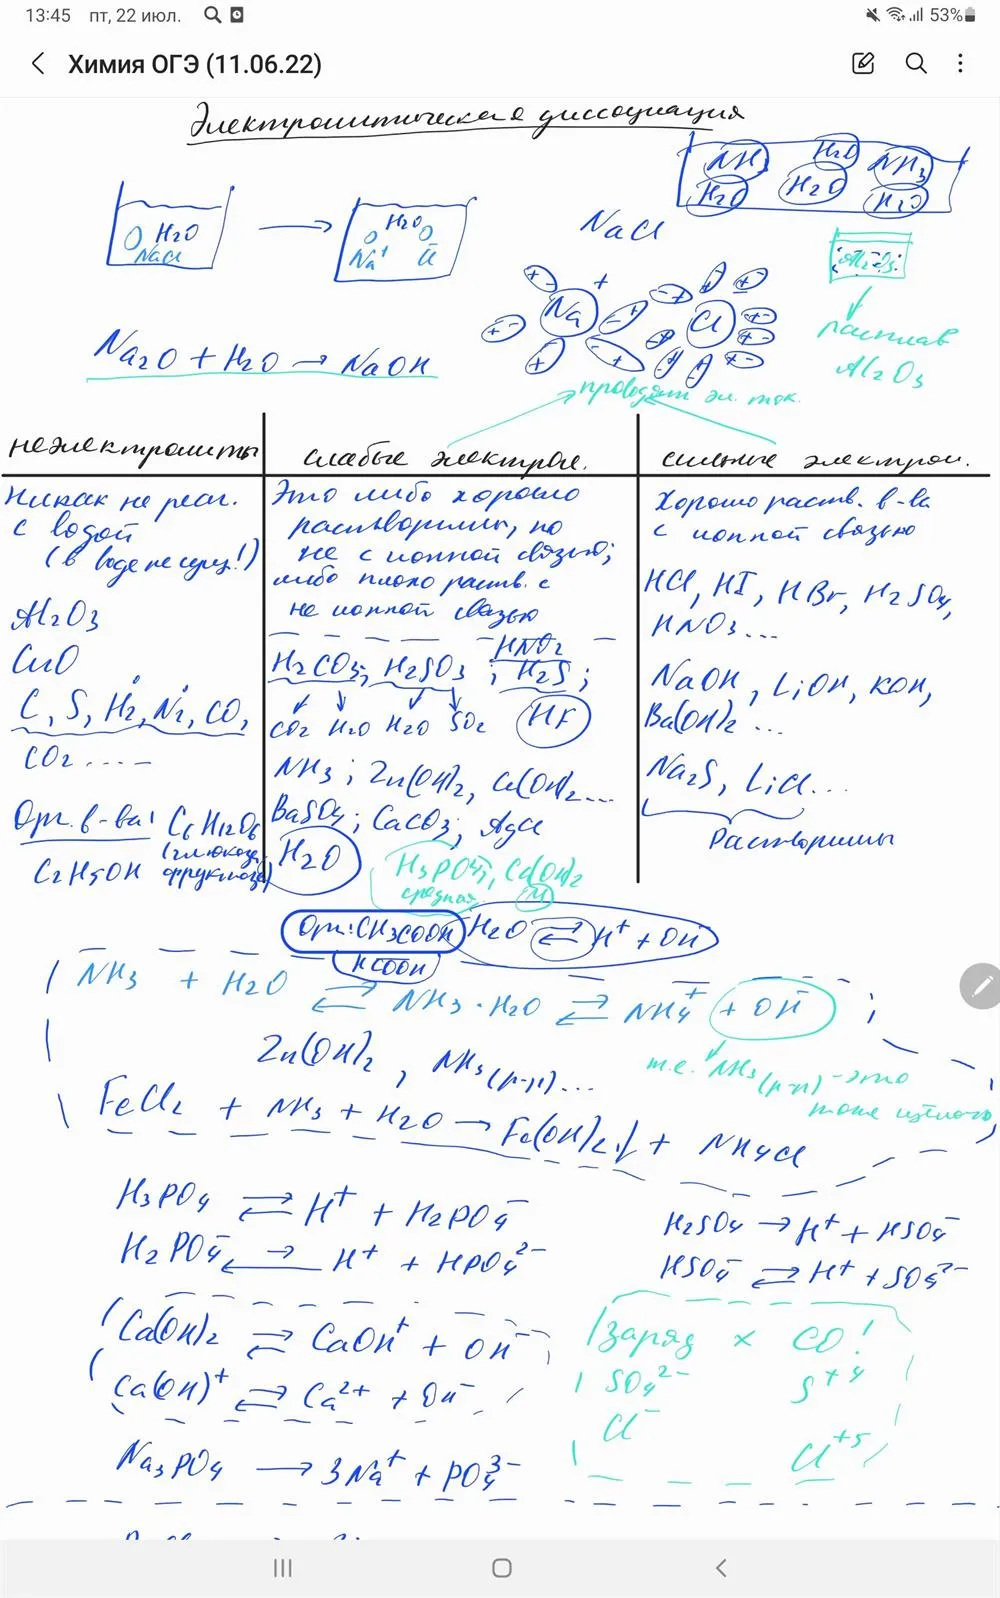 13:45 пт, 22 июл. 53%
Химия ОГЭ (11.06.22)
Электролитическая диссоциация
NH3 H2O NH3
H2O H2O H2O
H2O NaCl → H2O Na+ Cl-
NaCl
Na + Cl
Al2O3
расплав
Al2O3
Na2O + H2O → NaOH
проводят эл. ток.
неэлектролиты слабые электрол. сильные электрол.
Никак не реаг.
с водой
(в воде не сущ!)
Al2O3
CuO
C, S, H2, N2, CO,
CO2 ....
Орг. в-ва! C6H12O6
(глюкоза,
фруктоза)
C2H5OH
Это либо хорошо
растворимы, но
не с ионной связью;
либо плохо раств. с
не ионной связью
HNO2
H2CO3; H2SO3; H2S;
CO2 H2O H2O SO2 HF
NH3; Zn(OH)2, Cu(OH)2...
BaSO4; CaCO3; AgCl
H2O
H3PO4; Ca(OH)2
средняя М
Хорошо раств. в-ва
с ионной связью
HCl, HI, HBr, H2SO4,
HNO3...
NaOH, LiOH, KOH,
Ba(OH)2 ...
Na2S, LiCl...
Растворимы
Орг: CH3COOH H2O ⇄ H+ + OH-
HCOOH
NH3 + H2O ⇄ NH3·H2O ⇄ NH4+ + OH-
Zn(OH)2, NH3(р-р)...
т.е. NH3(р-р) - это
тоже щёлочь
FeCl2 + NH3 + H2O → Fe(OH)2↓ + NH4Cl
H3PO4 ⇄ H+ + H2PO4-
H2PO4- ⇄ H+ + HPO4 2-
H2SO4 → H+ + HSO4-
HSO4- ⇄ H+ + SO4 2-
Ca(OH)2 ⇄ CaOH+ + OH-
Ca(OH)+ ⇄ Ca2+ + OH-
заряд × СО!
SO4 2- S+4
Cl- Cl+5
Na3PO4 → 3Na+ + PO4 3-